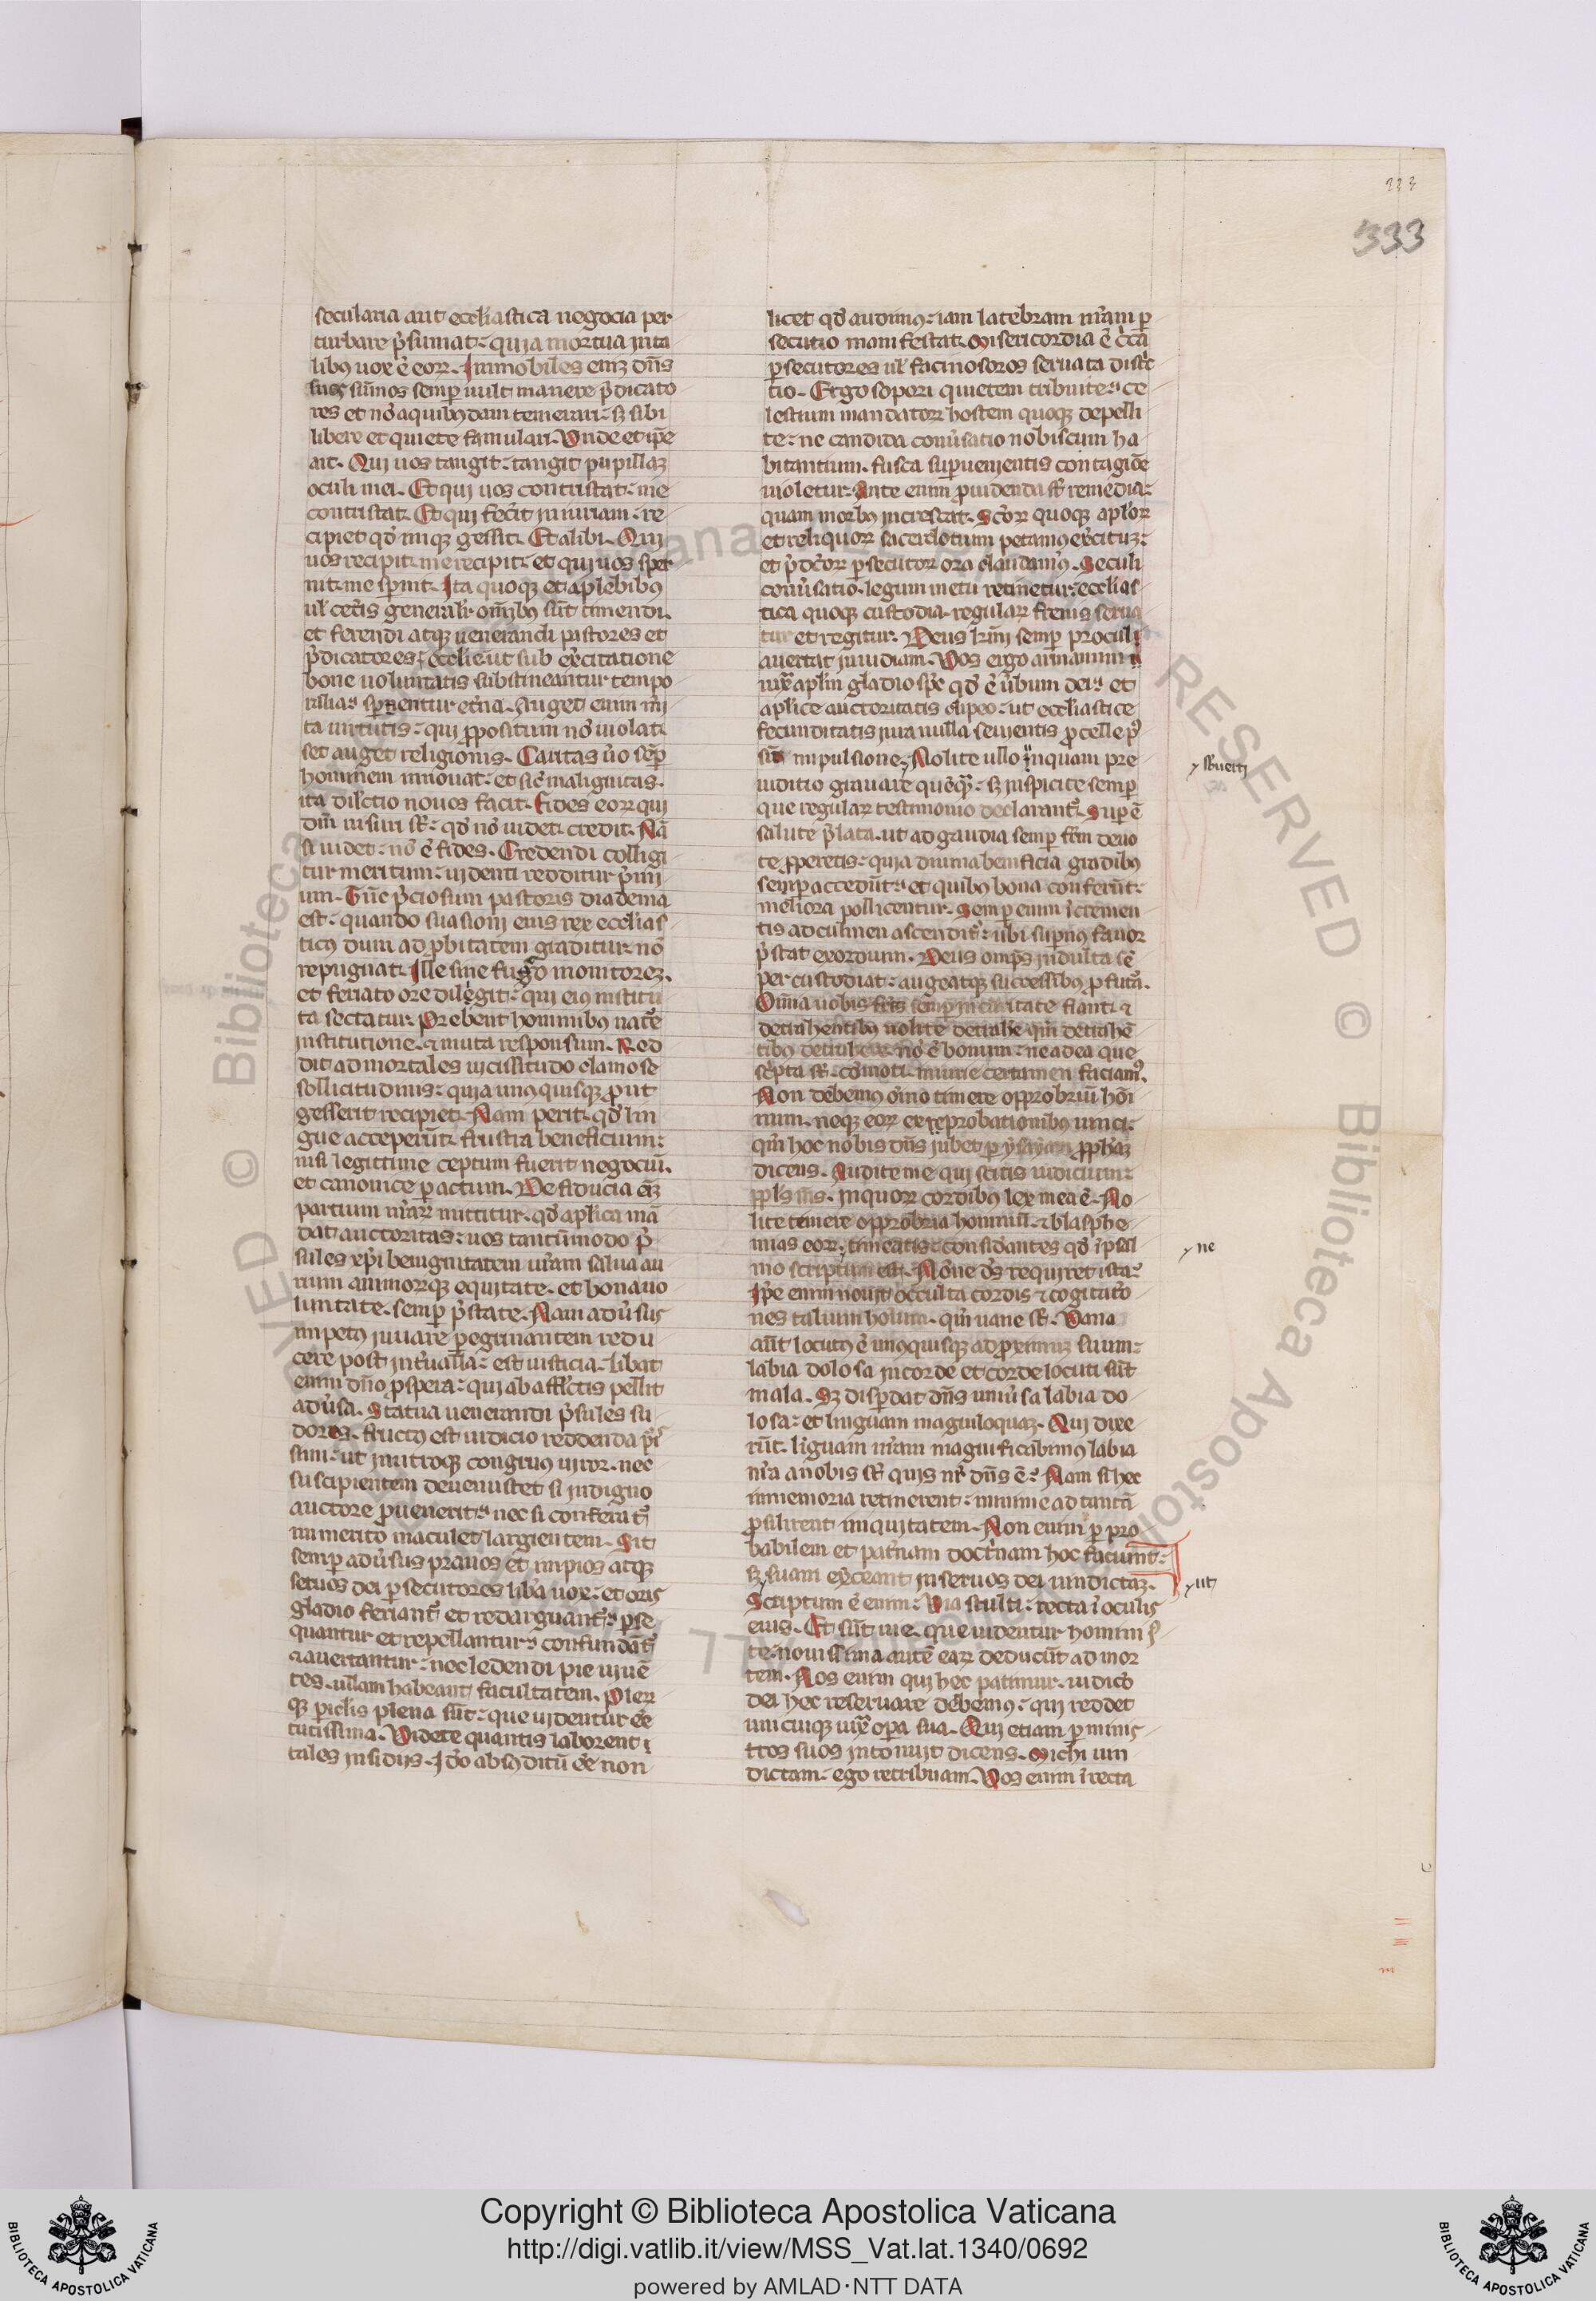 333
333
secularia aut eccl̄iastica negocia per
turbare p̄sumat: quia mortua in ta
libꝰ uox ē eoꝝ. Immobiles eniꝫ dn̄s
suos sūmos semꝑ uult manere p̄dicato
res et nō a quibꝰdam temerari: sꝫ sibi
libere et quiete famulari. Vnde et ip̄e
ait. Qui uos tangit: tangit pupillaꝫ
oculi mei. Et qui uos contristat: me
contristat. Et qui fec̄it iniuriam: re
cipiet qd̄ iniqꝫ gessit. Et alibi. Qui
uos recipit: me recipit: et qui uos sper
nit: me spnit. Ita quoqꝫ et a plebibꝰ
ul̄ cet̄is general̄r om̄ibꝰ sūt timendi.
et ferendi atqꝫ uenerandi pastores et
p̄dicatores eccl̄ie: ut sub ex̄citatione
bone uoluntatis substineantur tempo
ralia: spnentur et̄na. Auget enim m̄i
ta uirtutis: qui ꝓpositum nō uiolat.
set auget religionis. Caritas ūo semꝑ
hominem innouat: et sic̄ malignitas.
ita dilc̄tio nouos facit. Fides eoꝝ qui
dm̄ uisuri sƭ: qd̄ nō uidet. credit. Nā
si uidet: nō ē fides. Credendi colligi
tur meritum: uidenti redditur p̄mi
um. Tūc p̄ciosum pastoris diadema
est: quando suasioni eius rex ecclias
ticꝰ dum ad ꝓbitatem graditur: nō
repugnat. Ille sine fuco monitoreꝫ.
et feriato ore diligit: qui eiꝰ institu
ta sectatur. Prebent hominibꝰ nat̄e
institutione. ⁊ muta responsum. Red
dit ad mortales uicissitudo clamose
sollicitudinis: quia unꝰquisqꝫ ꝓut
gesserit recipiet. Nam perit: qd̄ lin
gue acceperūt frustra beneficium:
nisi legittime ceptum fuerit negociū.
et canonice ꝑactum. De fiducia eīꝫ
partium nr̄aꝝ mittitur. qd̄ aplica mā
dat auctoritas: uos tantūmodo p̄
sules xp̄i benignitatem ur̄am salua au
rium animorꝗꝫ equitate. et bona uo
luntate. semꝑ p̄state. Nam adūsus
impetꝰ iuuare ꝑegrinantem redu
cere post int̄ualla: est iusticia. libat
enim dn̄o ꝓspera: qui ab afflc̄tis pellit
adūsa. Statua uenerandi p̄sules su
dores. fructꝰ est iudicio reddenda p̄i
simi: ut in utroqꝫ congruꝰ uiror. nec
suscipientem deuenustet si indigno
auctore ꝓuenerit: nec si conferat᷑
inmerito maculet largientem. Sit
semꝑ adūsus prauos et impios atqꝫ
seruos dei ꝑsecutores lib̄a uox: et oris
gladio feriant᷑ et redarguant᷑: ꝑse
quantur et repellantur: confundāt᷑
⁊ auertantur: nec ledendi pie uiuē
tes. ullam habeant facultatem. Pleꝝ
qꝫ ꝑiclis plena sūt: que uidentur eē
tutissima. Videte quantis laborent
tales insidijs. Id̄o absꝗditū eē non
licet qd̄ audimꝰ: iam latebram nr̄am ꝑ
secutio manifestat. Misericordia ē c̄ca
ꝑsecutores ul̄ facinosoros seruata distc̄
tio. Ergo sopori quietem tribuite: ce
lestium mandatoꝝ hostem quoqꝫ depelli
te: ne candida conūsatio nobiscum ha
bitantium. fusca suꝑuenientis contagiōe
uioletur. Ante enim ꝓuidenda sƭ remedia:
quam morbꝰ increscat. Sc̄oꝝ quoqꝫ aplōꝝ
et reliquoꝝ sacerdotum petamꝰ ex̄cituꝫ:
et p̄dc̄oꝝ ꝑsecutoꝝ ora claudamꝰ. Seculi
conūsatio. legum metu retinetur: ecclias
tica quoqꝫ custodia. regulaꝝ frenis serua
tur et regitur. Deus kr̄mi semꝑ procul
auertat inuidiam. Vos ergo armamini
iuxͣ aplm̄ gladio sp̄c qd̄ ē ūbum dei: et
aplice auctoritatis clipeo: ut eccliastice
fecunditatis iura nulla seuientis ꝓcelle p̄
sit impulsione. Nolite ullo unquam pre
iuditio grauare quēqͣ: sꝫ inspicite semꝑ
que regulaꝝ testimonio declarant᷑. Suꝑ ē
salute p̄lata. ut ad gaudia semꝑ frm̄ deuo
te ꝓperetis: quia diuina beneficia gradibꝰ
semꝑ accedūt: et quibꝰ bona conferūt:
meliora pollicentur. Semꝑ enim īcremen
tis ad culmen ascendit᷑: ubi suꝑnꝰ fauor
p̄stat exordium. Deus omp̄s indulta sē
per custodiat: augeatqꝫ successibꝰ ꝓfutā.
detrahentibꝰ nolite detrahē. qm̄ detrahē
tibꝰ detrahere: nō ē bonum: ne ad ea que
sc̄pta sƭ. cōmoti iniurie certamen faciamꝰ.
Non debemꝰ om̄ino timere opprobriū hōi
num. neqꝫ eoꝝ exprobationibus uinci:
qm̄ hoc nobis dn̄s iubet ꝑ ysayam ꝓph̄aꝫ
dicens. Audite me qui scitis iudicium:
ppls̄ ms̄. in quoꝝ cordibus lex mea ē. No
lite timere opprobria hominū. ⁊ blasphe
mias eoꝝ timeatis: considerantes qd̄ ī psal
mo scriptum est. Nōne d̄s requiret ista:
Ip̄e enim nouit occulta cordis ⁊ cogitatio
nes talium hoīum. qm̄ uane sƭ. Vana
aūt locutꝰ ē unꝰquisqꝫ ad ꝓximuꝫ suum:
labia dolosa in corde et corde locuti sūt
mala. Sꝫ disꝑdat dn̄s uniūsa labia do
losa: et linguam magniloquaꝫ. Qui dixe
rūt. līguam nr̄am magnificabimꝰ labia
nr̄a a nobis sƭ quis nr̄ dn̄s ē: Nam si hec
in memoria retinerent: minime ad tantā
ꝓsilirent iniquitatem. Non enim ꝑ pro
babilem et pat̄nam doct̄nam hoc faciunt:
sꝫ suam ex̄ceant in seruos dei uindictaꝫ.
Scriptum ē enim: Via stulti: recta ī oculis
eius. Et sūt uie. que uidentur homini r̄
te: nouissima autē eaꝝ deducūt ad mor
tem. Nos enim qui hec patimur. iudicō
dei hec reseruare debemus: qui reddet
unicuiqꝫ iuxͣ oꝑa sua. Qui etiam ꝑ minis
tros suos intonuit dicens. Michi uin
dictam: ego retribuam. Vos enim ī recta
ne
ut
Copyright © Biblioteca Apostolica Vaticana
http://digi.vatlib.it/view/MSS_Vat.lat.1340/0692
powered by AMLAD·NTT DATA
BIBLIOTECA APOSTOLICA VATICANA
BIBLIOTECA APOSTOLICA VATICANA